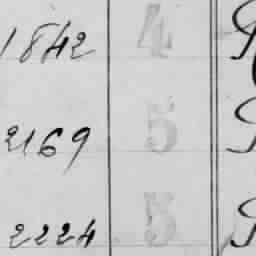 1842 4
2169 5
2224 5